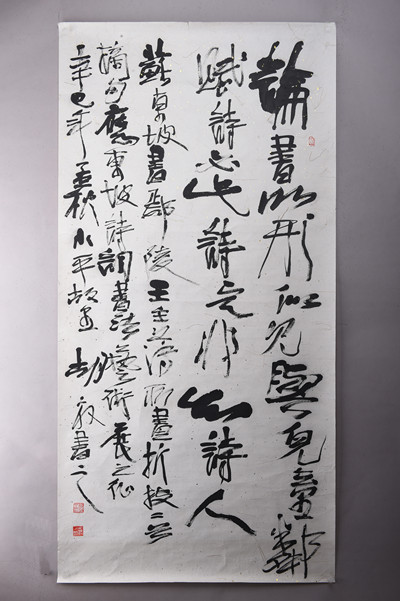 論書以形似見與兒童鄰
賦詩必此詩定非知詩人
蘇東坡書鄢陵王主簿所畫折枝二首
摘句應東坡詩詞書法藝術展之征
辛巳年孟秋 書之